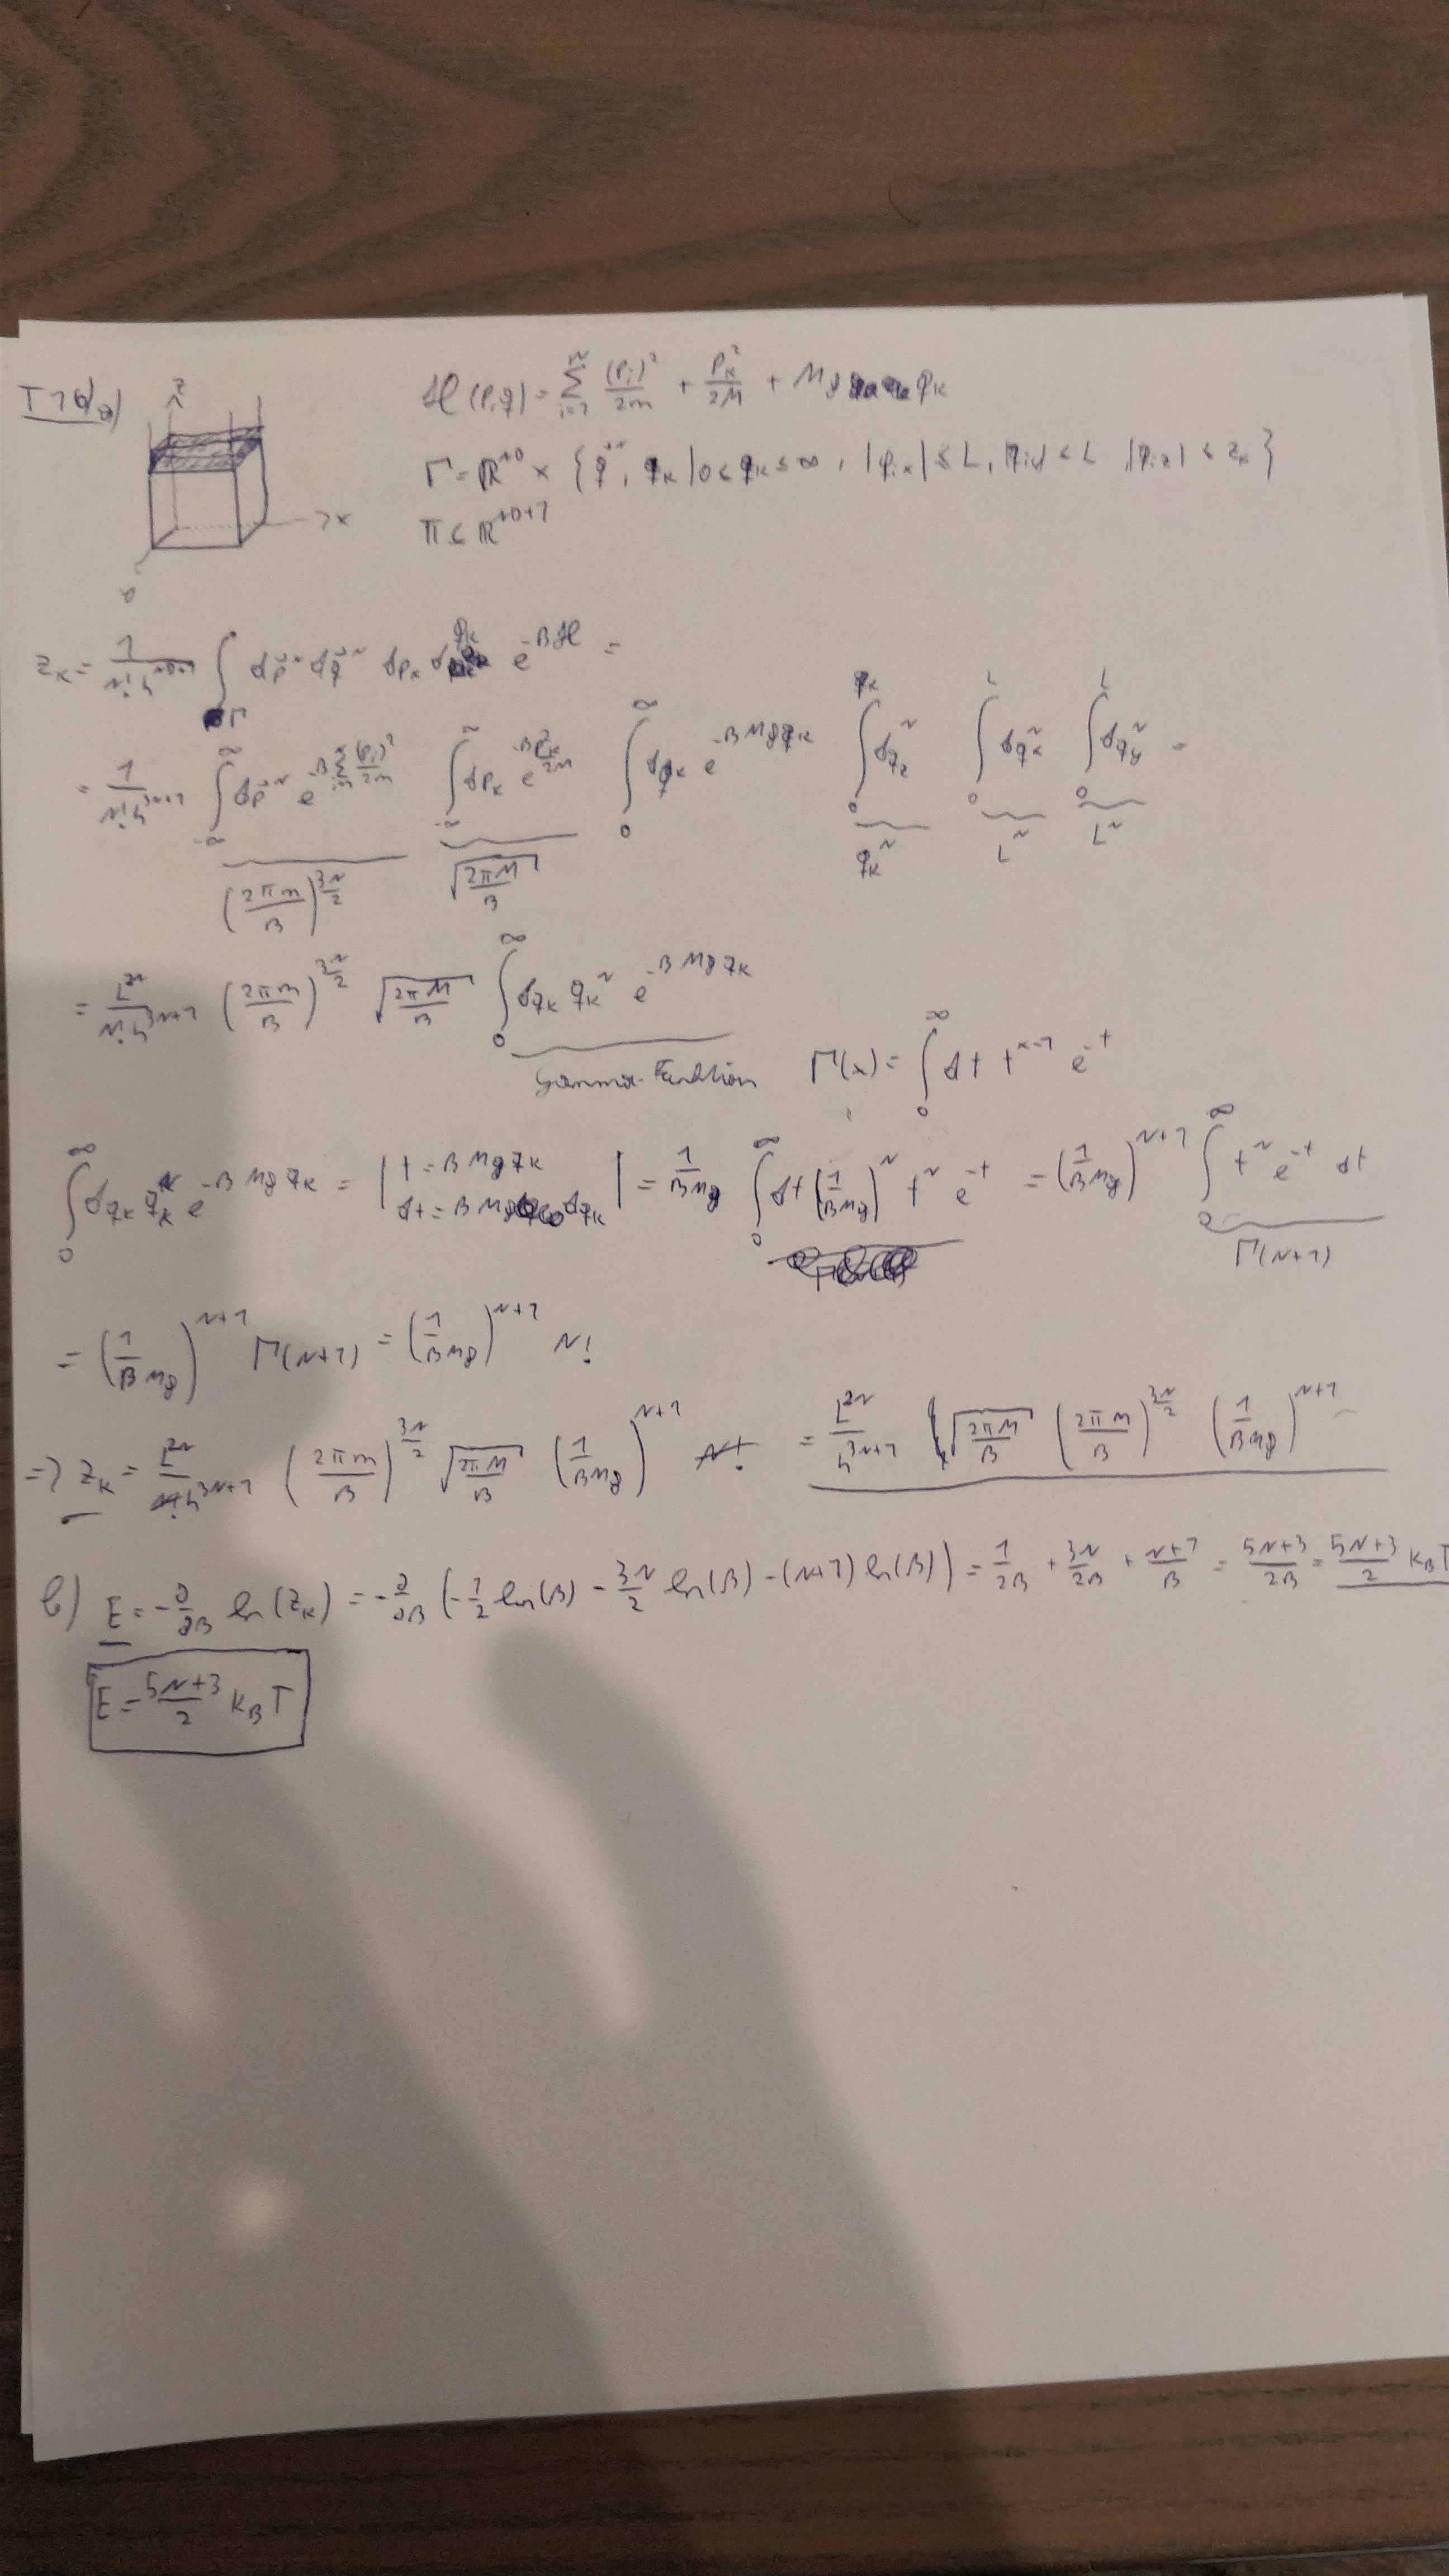 z
x
y
H(p,q) = Σ_{i=1}^{N} (p_i)²/2m + p_K²/2M + Mg q_K
Γ = ℝ × { q⃗^N, q_K | 0 ≤ q_K ≤ ∞, |q_ix| ≤ L, |q_iy| ≤ L, |q_iz| ≤ z_K }
Z_K = 1/(N! h^{3N+1}) ∫_Γ dp⃗^N dq⃗^N dp_K dq_K e^{-βH} =
= 1/(N! h^{3N+1}) ∫_{-∞}^{∞} dp⃗^N e^{-β Σ (p_i)²/2m} ∫_{-∞}^{∞} dp_K e^{-β p_K²/2M} ∫_0^∞ dq_K e^{-βMg q_K} ∫_0^{q_K} dq_z^N ∫_0^L dq_x^N ∫_0^L dq_y^N =
(2πm/β)^{3N/2} √(2πM/β) q_K^N L^N L^N
= L^{2N}/(N! h^{3N+1}) (2πm/β)^{3N/2} √(2πM/β) ∫_0^∞ dq_K q_K^N e^{-βMg q_K}
Gamma-Funktion Γ(x) = ∫_0^∞ dt t^{x-1} e^{-t}
∫_0^∞ dq_K q_K^N e^{-βMg q_K} = | t = βMg q_K dt = βMg dq_K | = 1/(βMg) ∫_0^∞ dt (1/(βMg))^N t^N e^{-t} = (1/(βMg))^{N+1} ∫_0^∞ t^N e^{-t} dt
Γ(N+1)
= (1/(βMg))^{N+1} Γ(N+1) = (1/(βMg))^{N+1} N!
=> Z_K = L^{2N}/(N! h^{3N+1}) (2πm/β)^{3N/2} √(2πM/β) (1/(βMg))^{N+1} N! = L^{2N}/h^{3N+1} √(2πM/β) (2πm/β)^{3N/2} (1/(βMg))^{N+1}
b) E = -∂/∂β ln(Z_K) = -∂/∂β (-1/2 ln(β) - 3N/2 ln(β) - (N+1) ln(β)) = 1/2β + 3N/2β + (N+1)/β = (5N+3)/2β = (5N+3)/2 k_B T
E = (5N+3)/2 k_B T